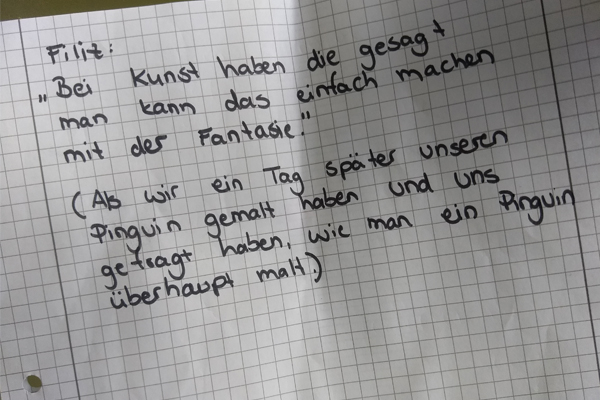 Filiz:
„Bei Kunst haben die gesagt
man kann das einfach machen
mit der Fantasie."
(Als wir ein Tag später unseren
Pinguin gemalt haben und uns
gefragt haben, wie man ein Pinguin
überhaupt malt.)